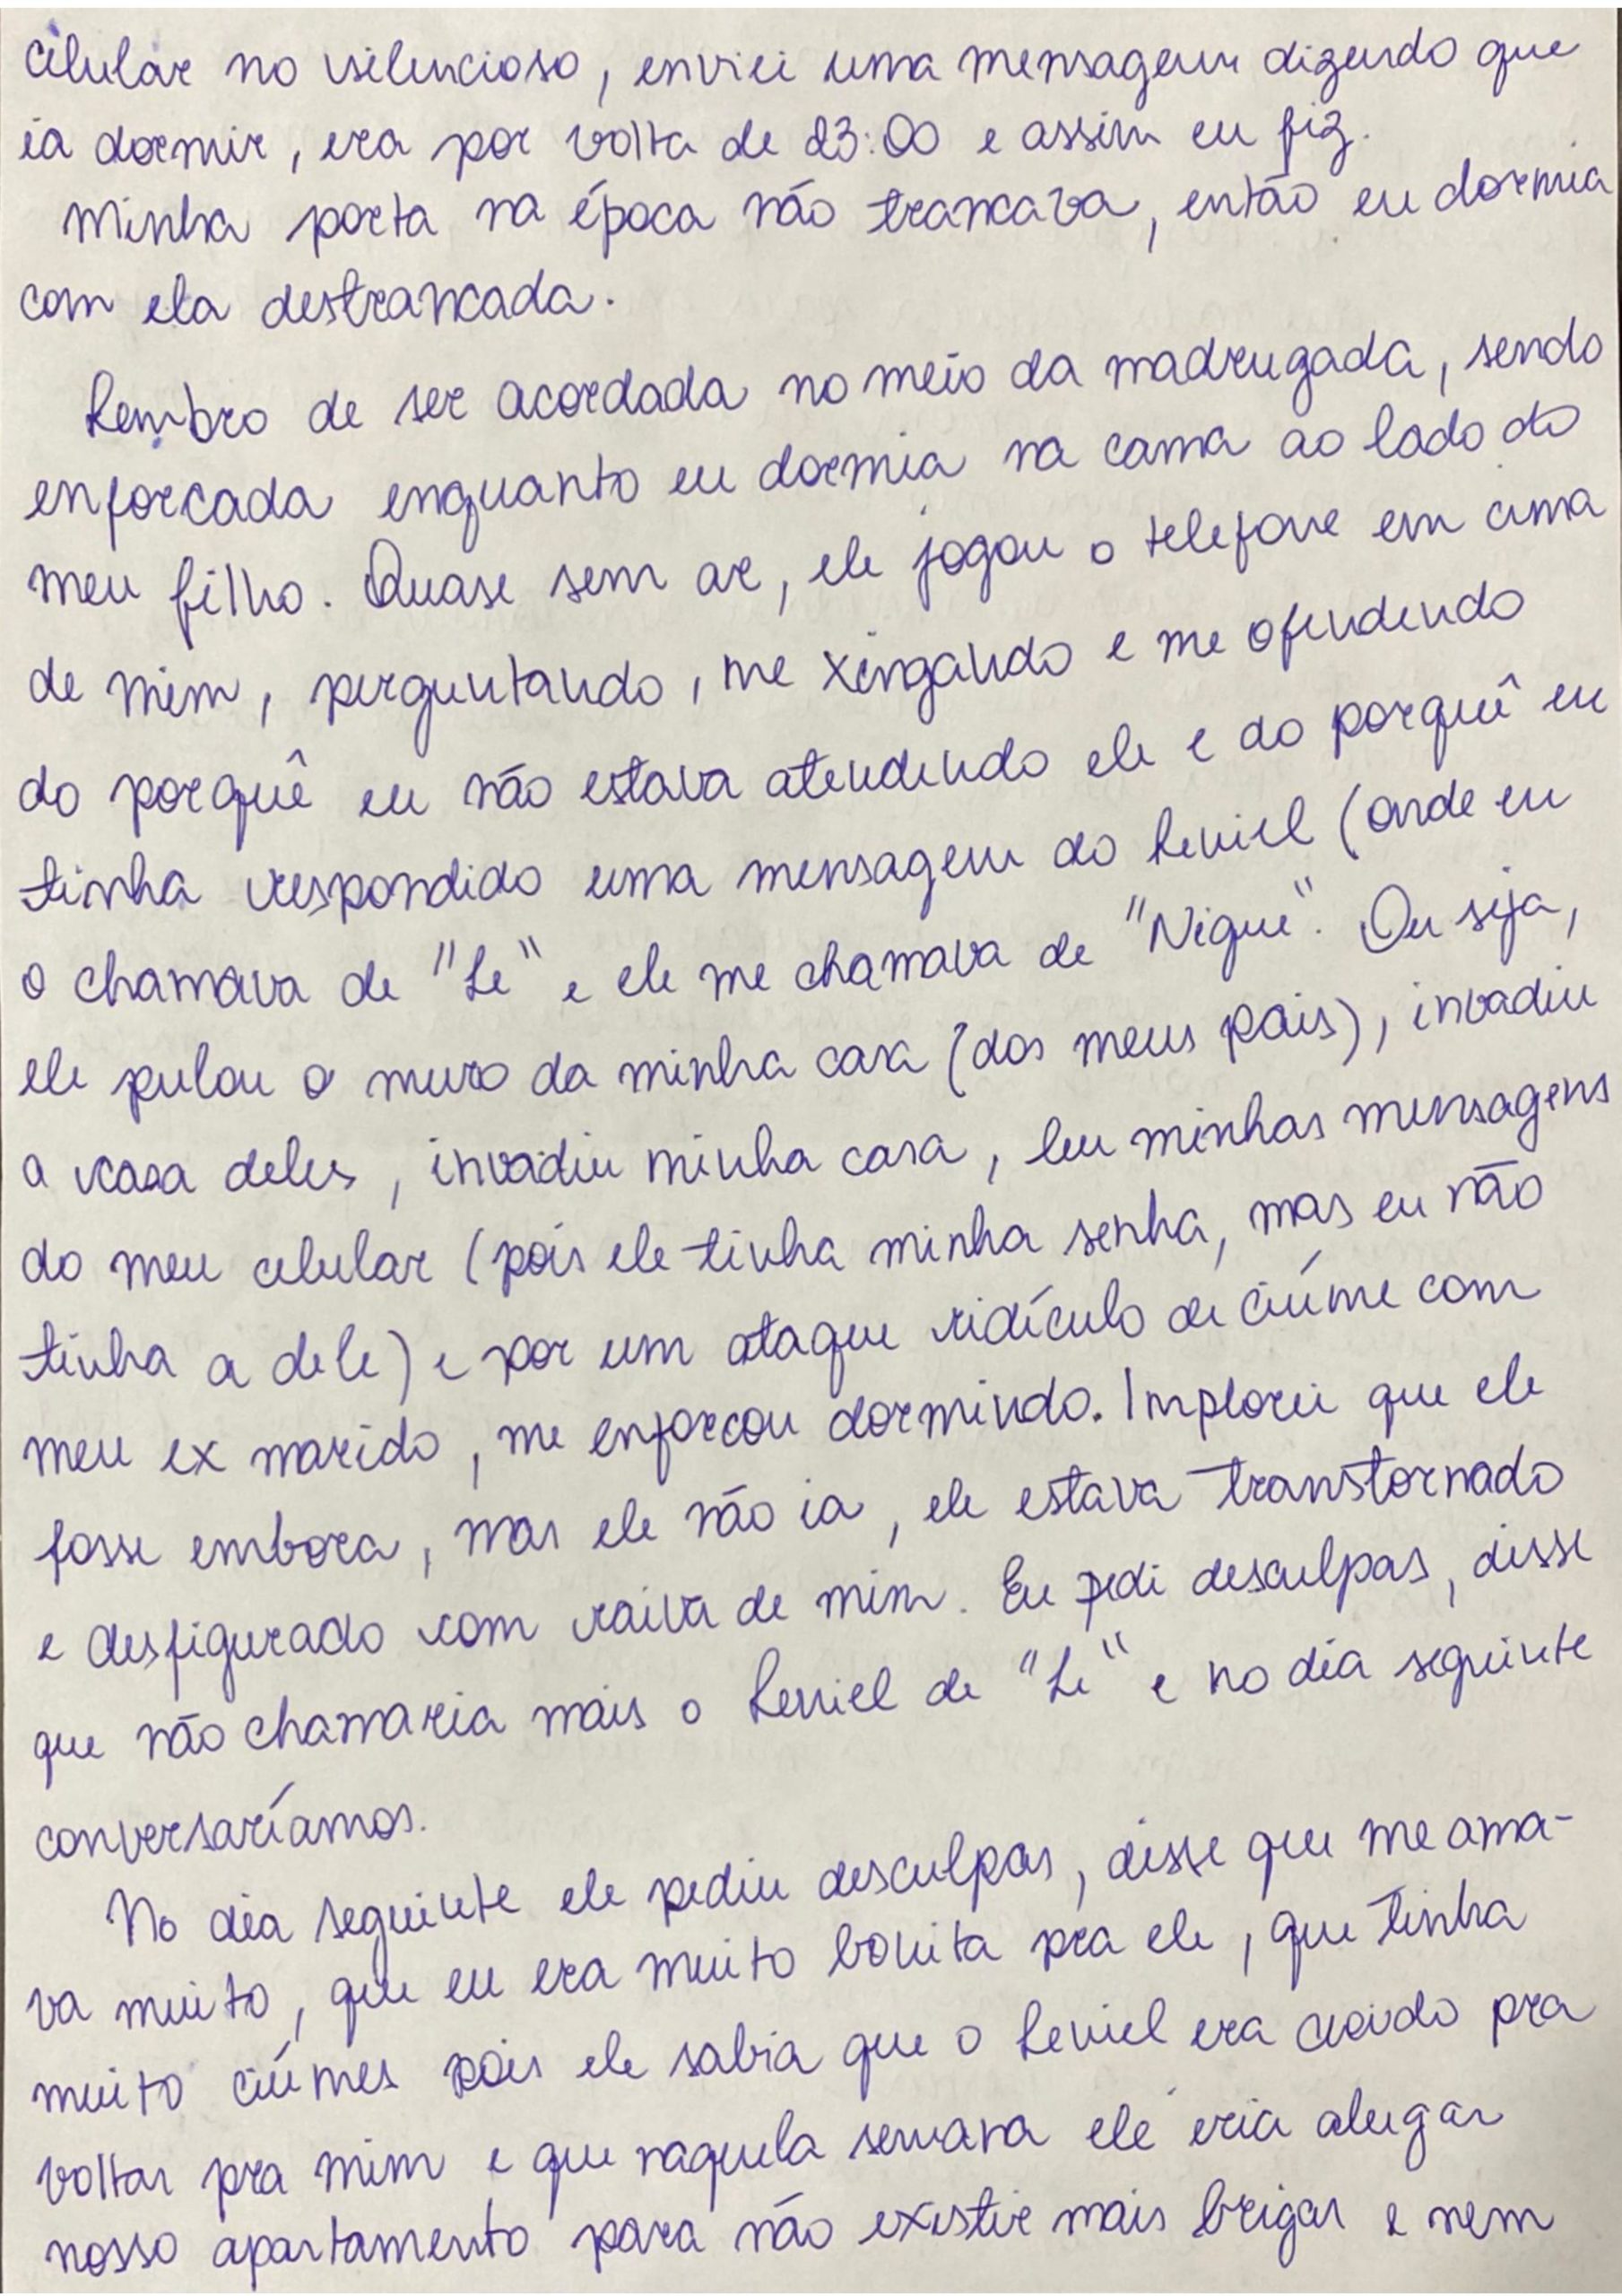 celular no silencioso, enviei uma mensagem dizendo que
ia dormir, era por volta de 23:00 e assim eu fiz.
Minha porta na época não trancava, então eu dormia
com ela destrancada.
Lembro de ser acordada no meio da madrugada, sendo
enforcada enquanto eu dormia na cama ao lado do
meu filho. Quase sem ar, ele jogou o telefone em cima
de mim, perguntando, me xingando e me ofendendo
do porquê eu não estava atendendo ele e do porquê eu
tinha respondido uma mensagem do Leniel (onde eu
o chamava de "Le" e ele me chamava de "Nigue". Ou seja,
ele pulou o muro da minha casa (dos meus pais), invadiu
a casa deles, invadiu minha casa, leu minhas mensagens
do meu celular (pois ele tinha minha senha, mas eu não
tinha a dele) e por um ataque ridículo de ciúme com
meu ex marido, me enforcou dormindo. Implorei que ele
fosse embora, mas ele não ia, ele estava transtornado
e desfigurado com raiva de mim. Eu pedi desculpas, disse
que não chamaria mais o Leniel de "Le" e no dia seguinte
conversaríamos.
No dia seguinte ele pediu desculpas, disse que me ama-
va muito, que eu era muito bonita pra ele, que tinha
muito ciúmes pois ele sabia que o Leniel era doido pra
voltar pra mim e que naquela semana ele iria alugar
nosso apartamento para não existir mais brigas e nem